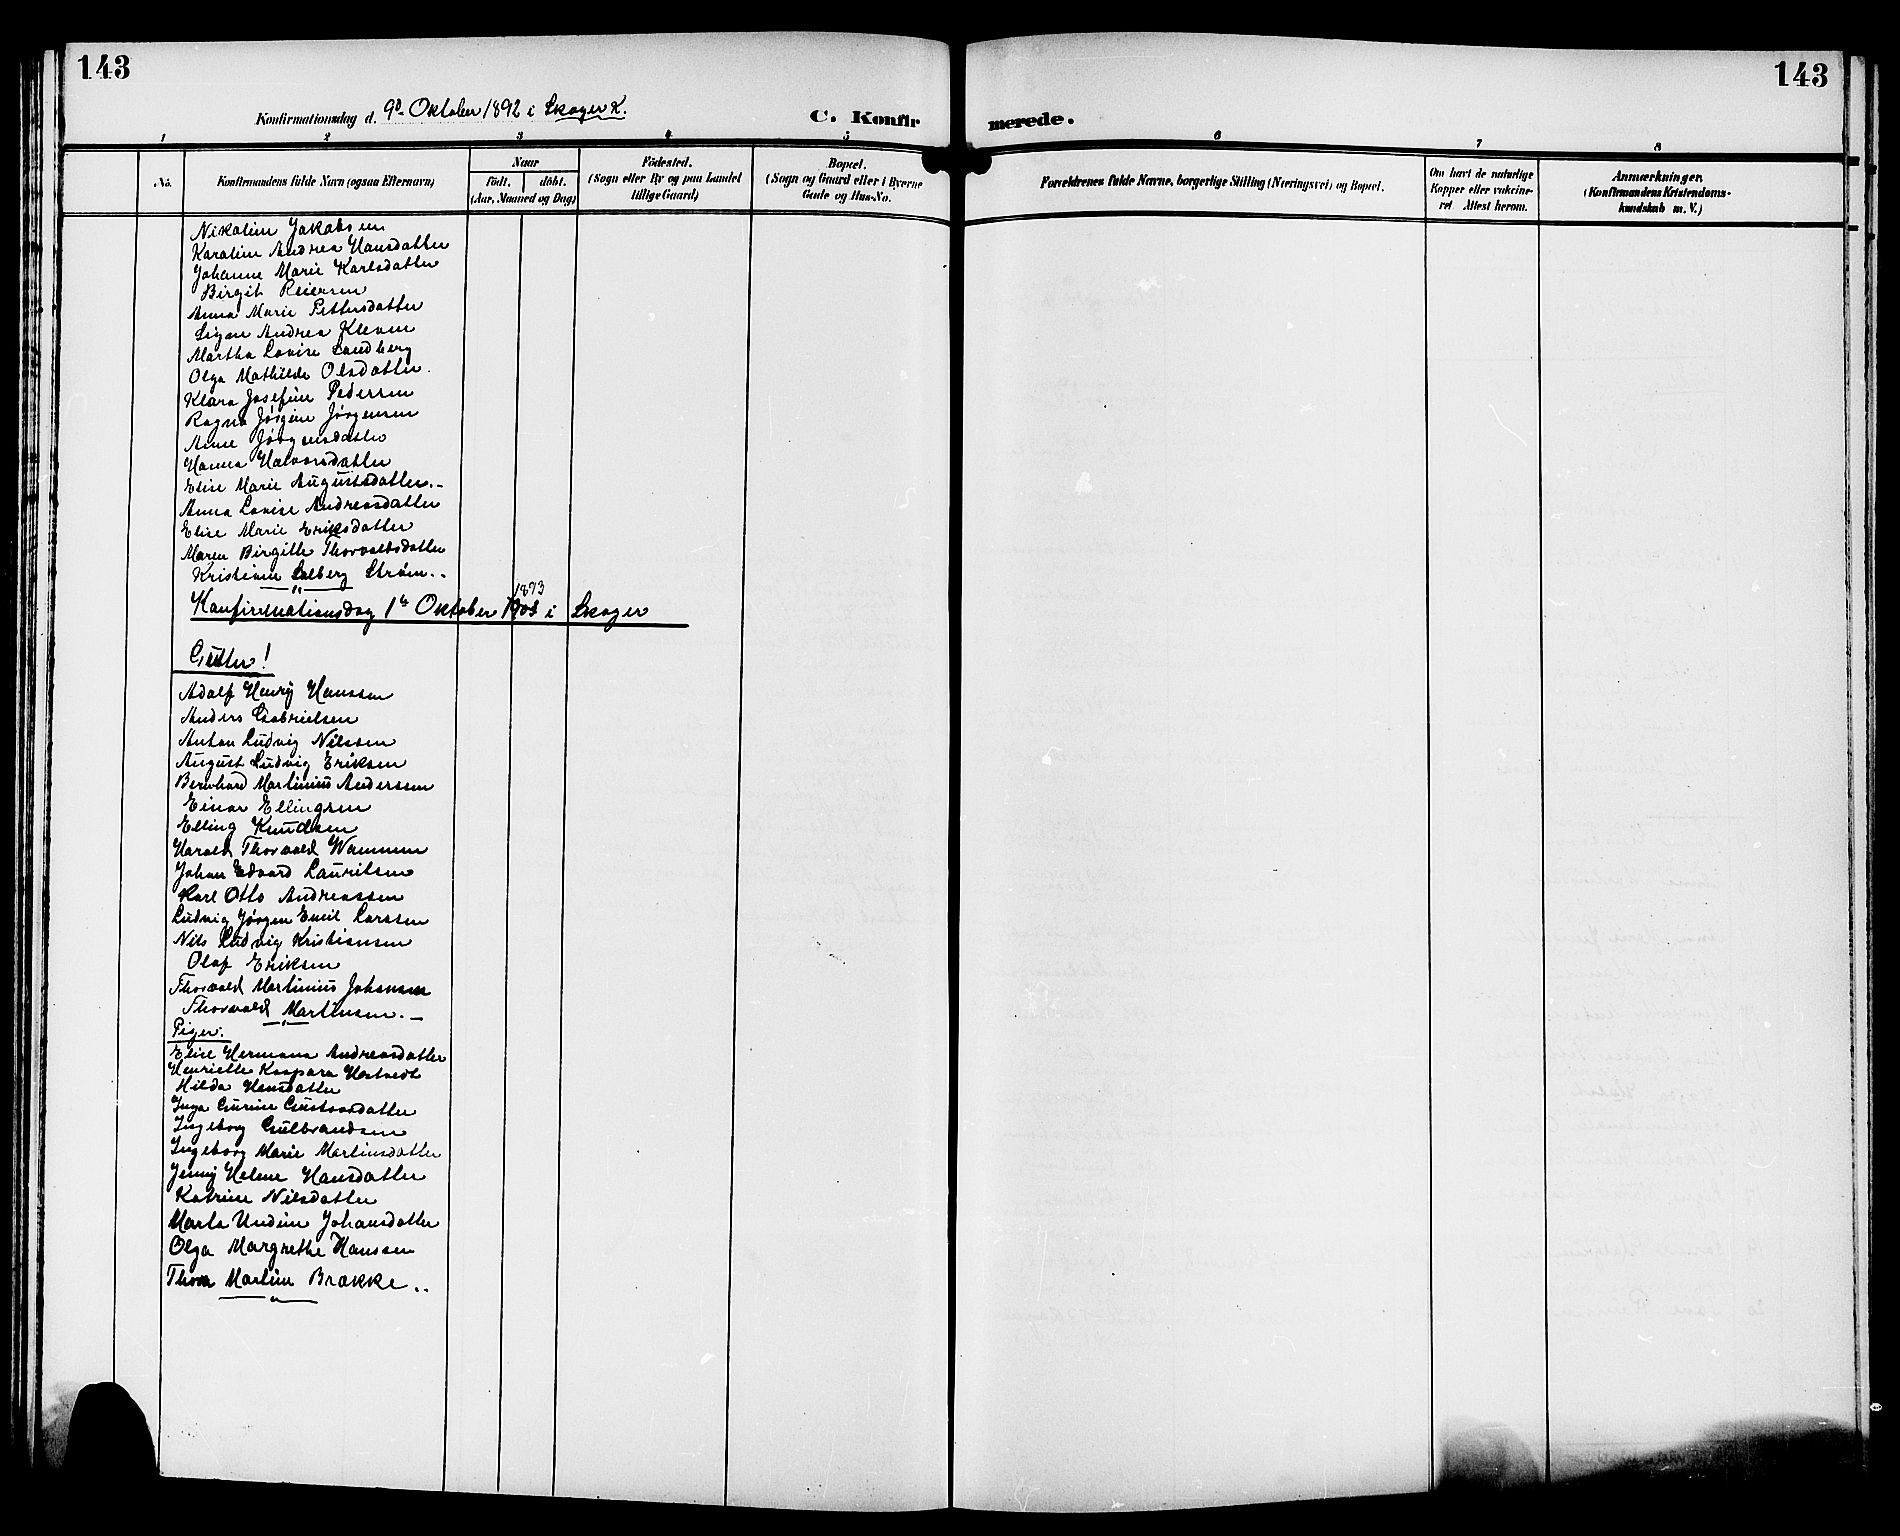 143
143
Konfirmationsdag d. 9d Oktober 1892 i Skoger K.
C. Konfirmerede.
1 2 3 4 5 6 7 8
No.
Konfirmandens fulde Navn (ogsaa Efternavn)
Naar
født. døbt.
(Aar, Maaned og Dag)
Fødested.
(Sogn eller By og paa Landet
tillige Gaard)
Bopæl.
(Sogn og Gaard eller i Byerne
Gade og Hus-No.
Forældrenes fulde Navne, borgerlige Stilling (Næringsvei) og Bopæl.
Om havt de naturlige
Kopper eller vakcine-
ret Attest herom.
Anmærkninger,
(Konfirmandens Kristendoms-
kundskab m. V.)
Nikoline Jakobsen
Karoline Andrea Hansdatter
Johanne Marie Karlsdatter
Birgit Reiersen
Anna Marie Pettersdatter
Signe Andrea Kleven
Martha Lovise Sandberg
Olga Mathilde Olsdatter.
Klara Josefine Pedersen
Ragna Jørgine Jørgensen
Anne Jørgensdatter
Hanna Halvorsdatter
Elise Marie Augustsdatter.-
Anna Lovise Andreasdatter
Elise Marie Eriksdatter
Maren Birgitte Thorvaldsdatter
Kristiane Solberg Strøm..
Konfirmationsdag 1ste Oktober 1893 i Skoger
Gutter!
Adolf Henry Hanssen
Anders Gabrielsen
Anton Ludvig Nilssen
August Ludvig Eriksen
Bernhard Martinius Anderssen
Einar Ellingsen
Elling Knudsen
Harald Thorvald Wammen
Johan Edvard Lauritsen
Karl Otto Andreassen
Ludvig Jørgen Emil Larssen
Nils Ludvig Kristiansen
Olaf Eriksen
Thorvald Martinius Johansen
Thorvald Martinsen.-
Piger.
Elise Hermana Andreasdatter
Henriette Kaspara Hestvedt
Hilda Hansdatter
Inga Gurine Gustavsdatter
Ingeborg Gulbrandsen
Ingeborg Marie Martinsdatter
Jenny Helene Hansdatter
Katrine Nilsdatter
Marta Undine Johansdatter
Olga Margrethe Hanssen
Thora Martine Brække..